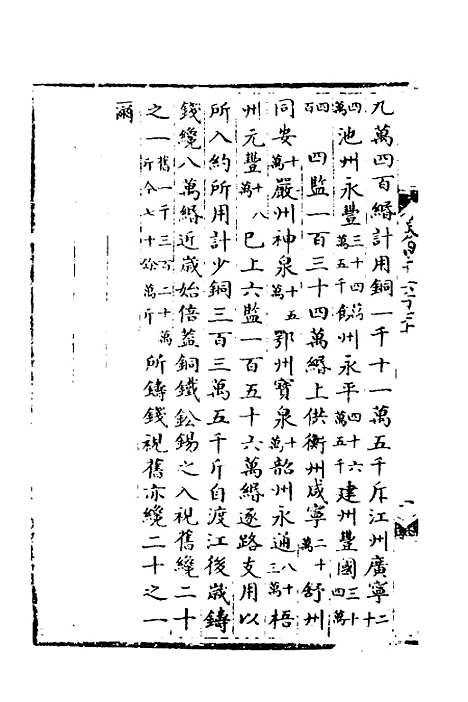 九萬四百緡計用銅一千十一萬五千斥江州廣寧二十
四萬池州永豐三十四萬五千饒州永平四十六萬五千建州豐國三十四萬
四百四監一百三十四萬緡上供衡州咸寧二十萬舒州
同安十萬嚴州神泉十五萬鄂州寶泉十萬韶州永通八十三萬梧
州元豐十八萬已上六監一百五十六萬緡逐路支用以
所入約所用計少銅三百三萬五千斤自渡江後歲鑄
錢纔八萬緡近歲始倍葢銅鐵鉛錫之入視舊纔二十
之一舊一千三百二十萬斤今七十餘萬斤所鑄錢視舊亦纔二十之一
爾